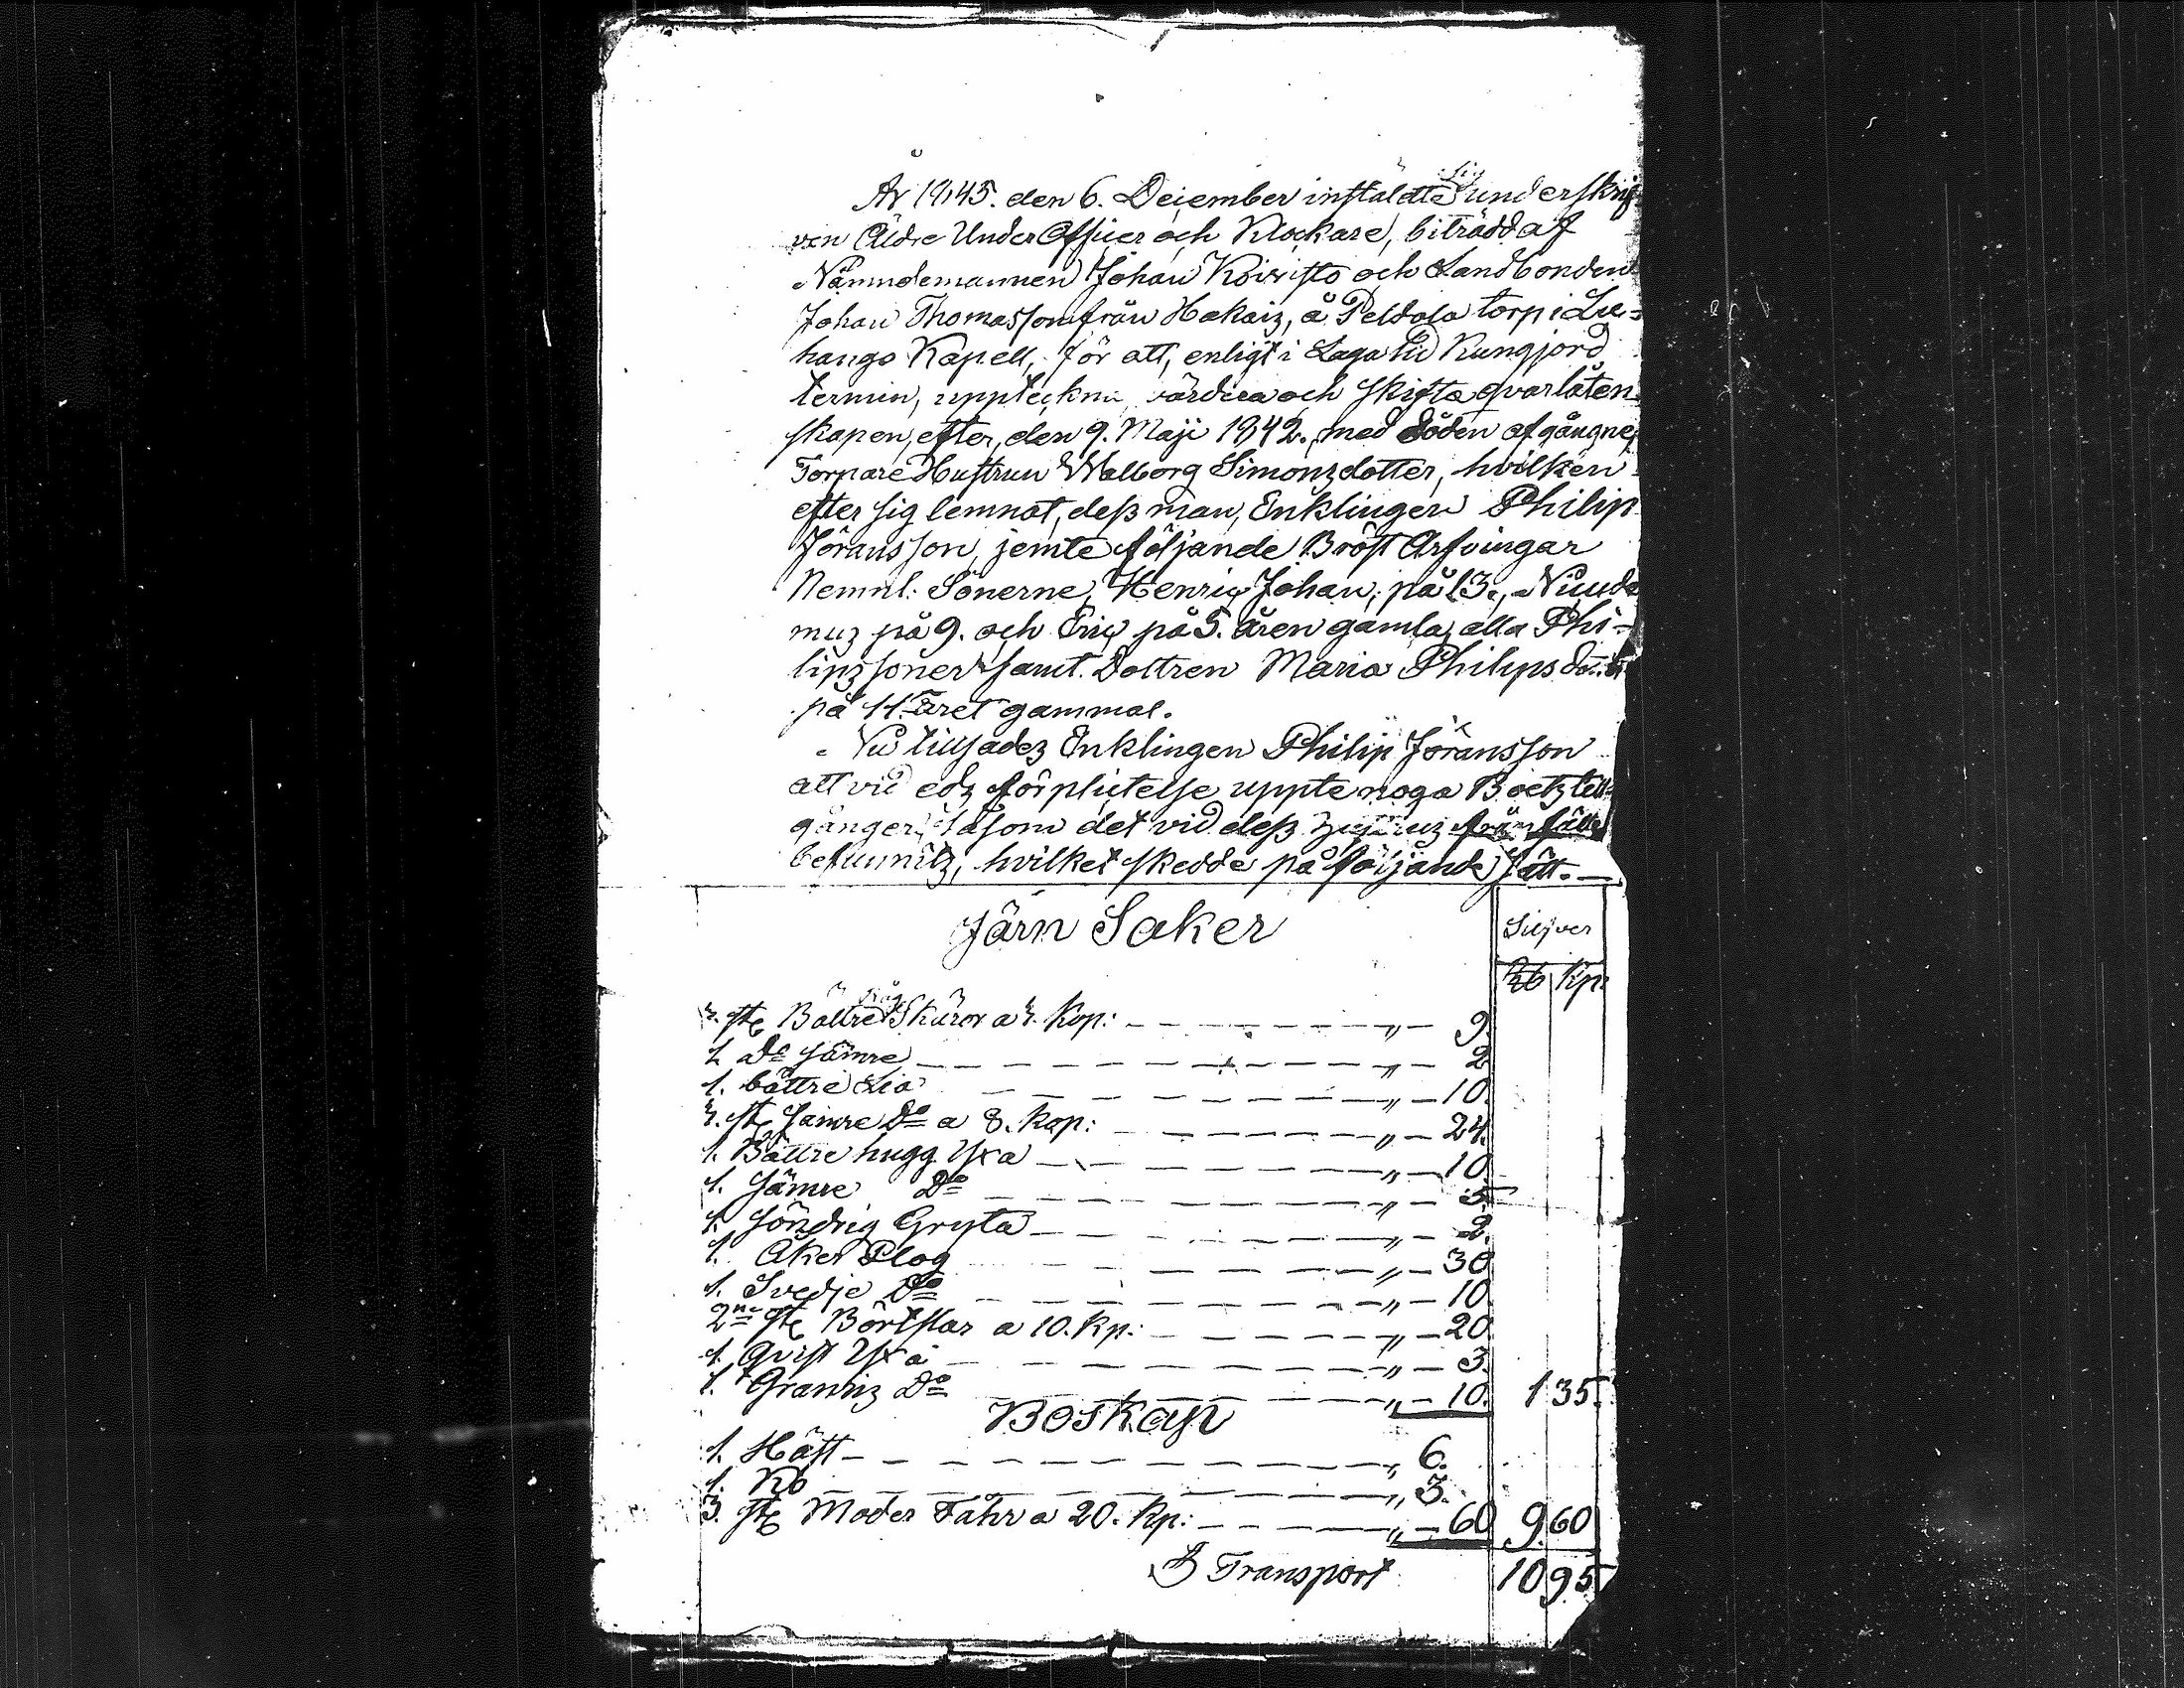 År 1845. den 6. December instäldte sig underskrif
ven Äldre UnderOfficer och Klockare, biträdd af
Nämndemannen Johan Koivisto och Landbonden
Johan Thomasson från Hakais, å Peldola torp i Lu=
hango Kapell, för att, enligt i Laga tid kungjord
termin, uppteckna värdera och skifta qvarlåten
skapen, efter, den 9. Maji 1842. med döden afgångne,
Torpare Hustrun Walborg Simonsdotter, hvilken
efter sig lemnat, dess man, Enklingen Philip
Jöransson, jemte följande Bröst Arfvingar
Nemnl: Sönerne, Henric Johan, på 13., Nicode
mus på 9. och Eric på 5. åren gamla, alla Phi-
lipssöner samt Dottren Maria Philipsdotter
på 11. året gammal.
Nu tillsades Enklingen Philip Jöransson
att vid eds förplictelse uppte noga Boets till
gånger, såsom det vid dess hustrus frånfälle
befunnits, hvilket skedde på följande sätt. —
Järn Saker
Silfver
Rb Kp:
3. st Bättre Råg Skäror a 3. Kop: " 9.
1 Do sämre " 2
1. bättre Lia " 10.
3. st sämre Do a 8. kop: " 24.
1. Bättre hugg Yxa " 10.
1. Sämre Do " 5.
1. Söndrig Gryta " 2.
1. Åker Plog " 30
1. Svedje Do " 10.
2ne st Börstlar a 10. kp: " 20.
1. Qvist Yxa " 3.
1. Do " 10. 1 35.
Boskap
1. Häst " 6.
1. Ko " 3.
3. st Moder Fåhr a 20. Kp: " 60 9. 60
Transport 10 95